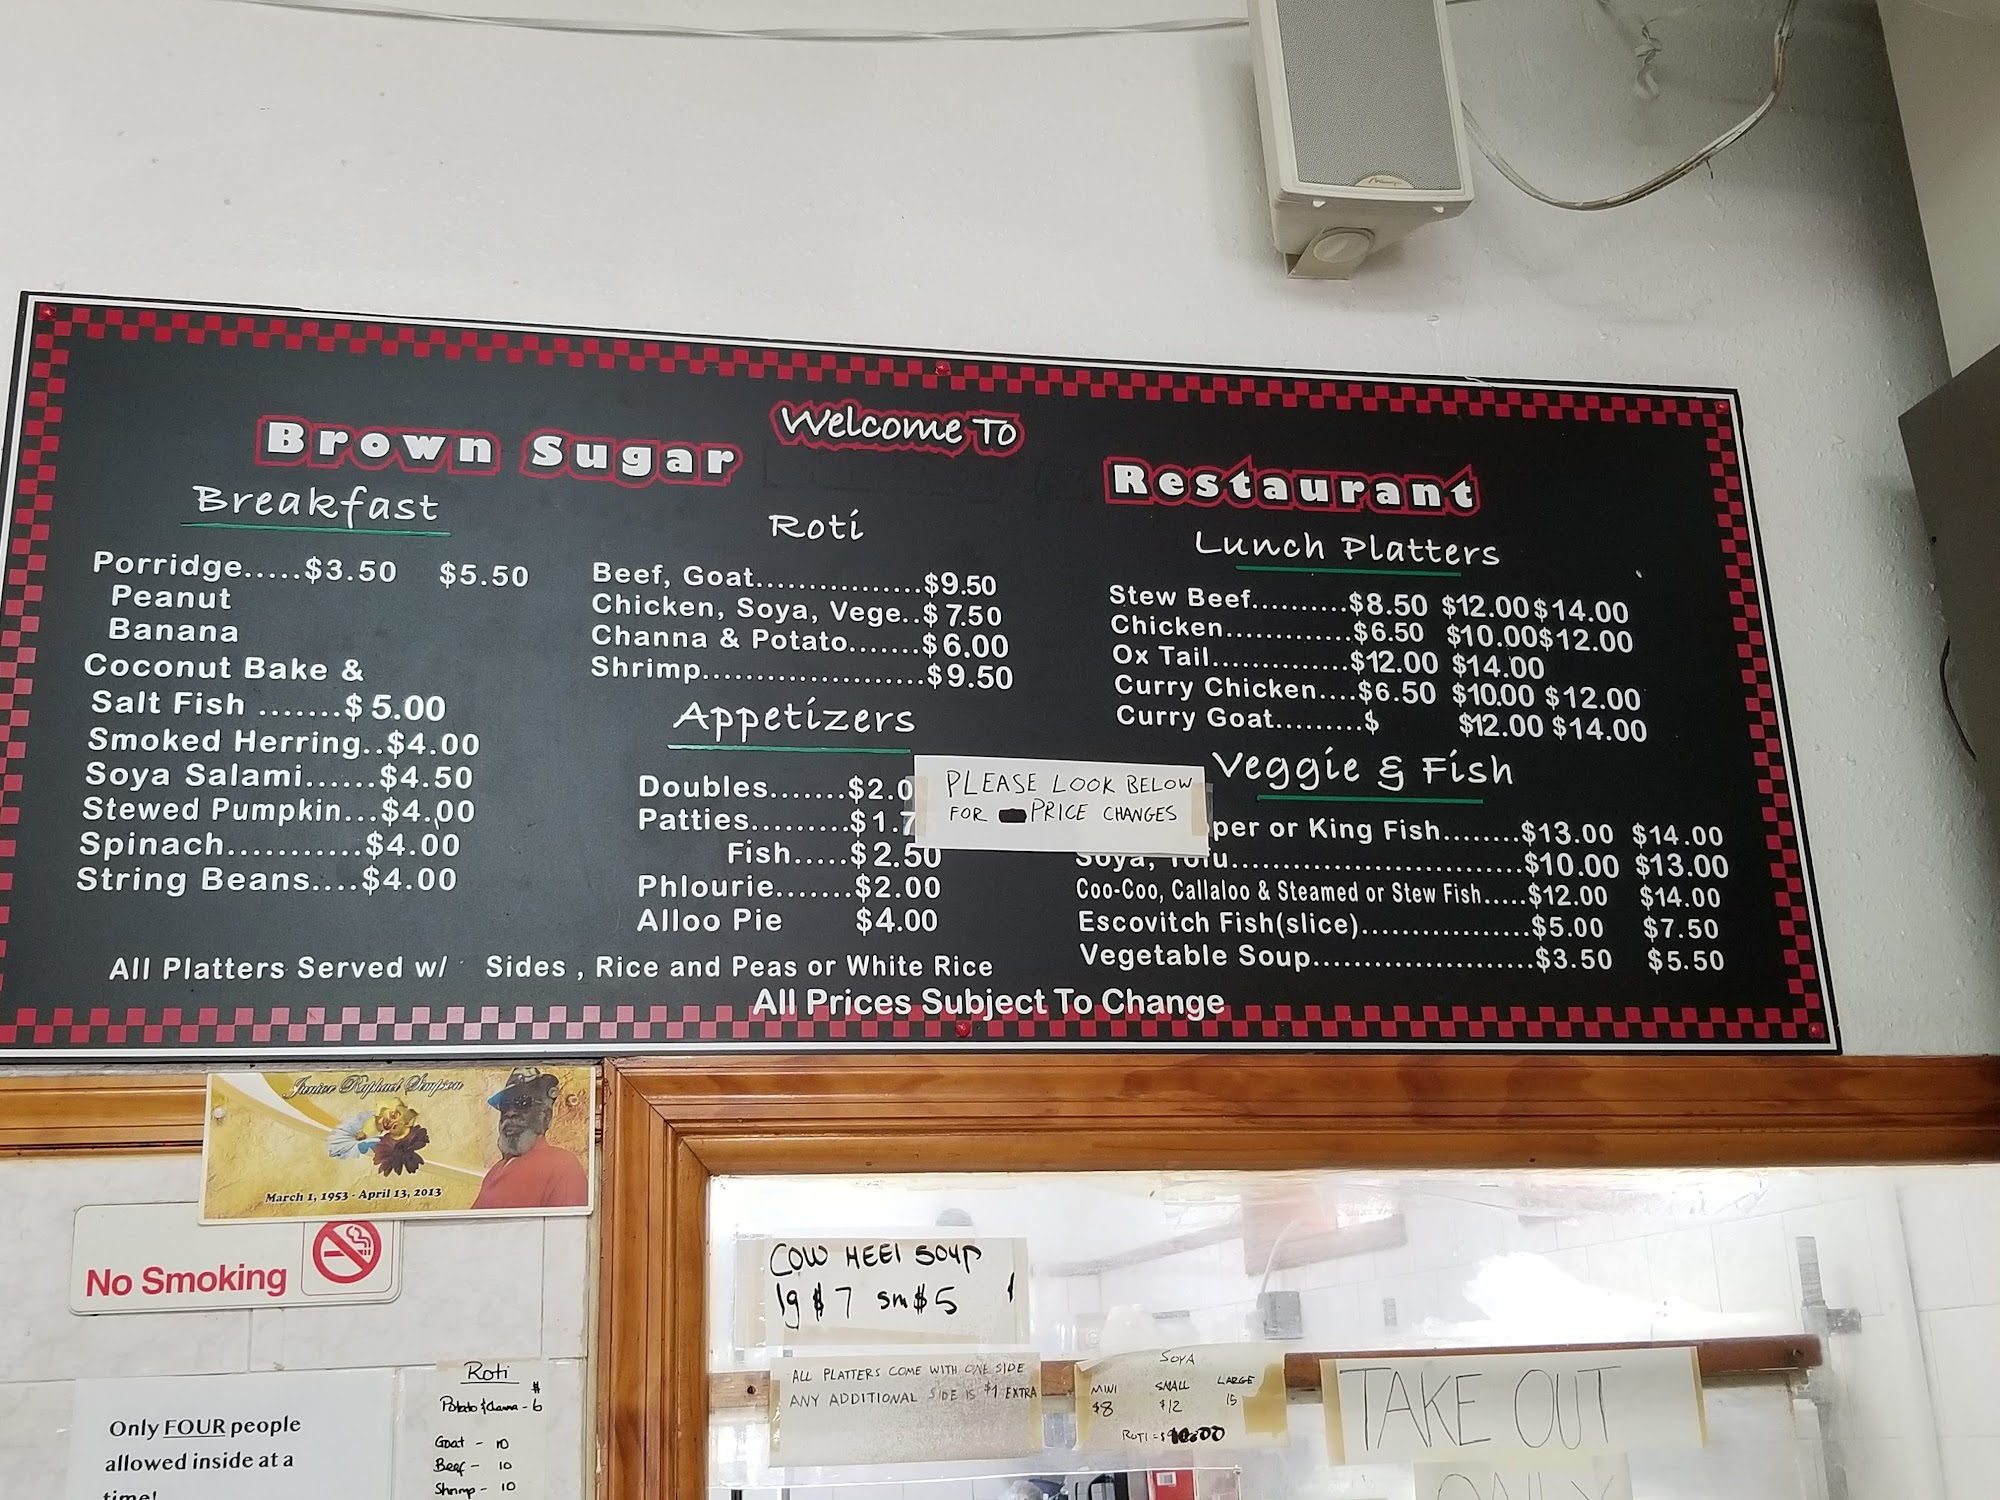 Welcome To
Brown Sugar Restaurant
Breakfast
Porridge.....$3.50 $5.50
Peanut
Banana
Coconut Bake &
Salt Fish .......$ 5.00
Smoked Herring..$4.00
Soya Salami......$4.50
Stewed Pumpkin...$4.00
Spinach...........$4.00
String Beans....$4.00
Roti
Beef, Goat...............$9.50
Chicken, Soya, Vege..$ 7.50
Channa & Potato.......$ 6.00
Shrimp.....................$9.50
Appetizers
Doubles.......$2.0
Patties.........$1.7
Fish.....$ 2.50
Phlourie.......$2.00
Alloo Pie $4.00
PLEASE LOOK BELOW
FOR PRICE CHANGES
Lunch Platters
Stew Beef..........$8.50 $12.00 $14.00
Chicken.............$6.50 $10.00 $12.00
Ox Tail..............$12.00 $14.00
Curry Chicken....$6.50 $10.00 $12.00
Curry Goat.........$ $12.00 $14.00
Veggie & Fish
per or King Fish........$13.00 $14.00
Soya, Tofu..............................$10.00 $13.00
Coo-Coo, Callaloo & Steamed or Stew Fish.....$12.00 $14.00
Escovitch Fish(slice).................$5.00 $7.50
Vegetable Soup.......................$3.50 $5.50
All Platters Served w/ Sides , Rice and Peas or White Rice
All Prices Subject To Change
Junior Raphael Simpson
March 1, 1953 - April 13, 2013
No Smoking
Only FOUR people
allowed inside at a
time!
Roti
$
Potato & Channa - 6
Goat - 10
Beef - 10
Shrimp - 10
COW HEEL SOUP
lg $7 sm $5
ALL PLATTERS COME WITH ONE SIDE
ANY ADDITIONAL SIDE IS $1 EXTRA
SOYA
MINI SMALL LARGE
$8 $12 15
ROTI = $ 10.00
TAKE OUT
ONLY